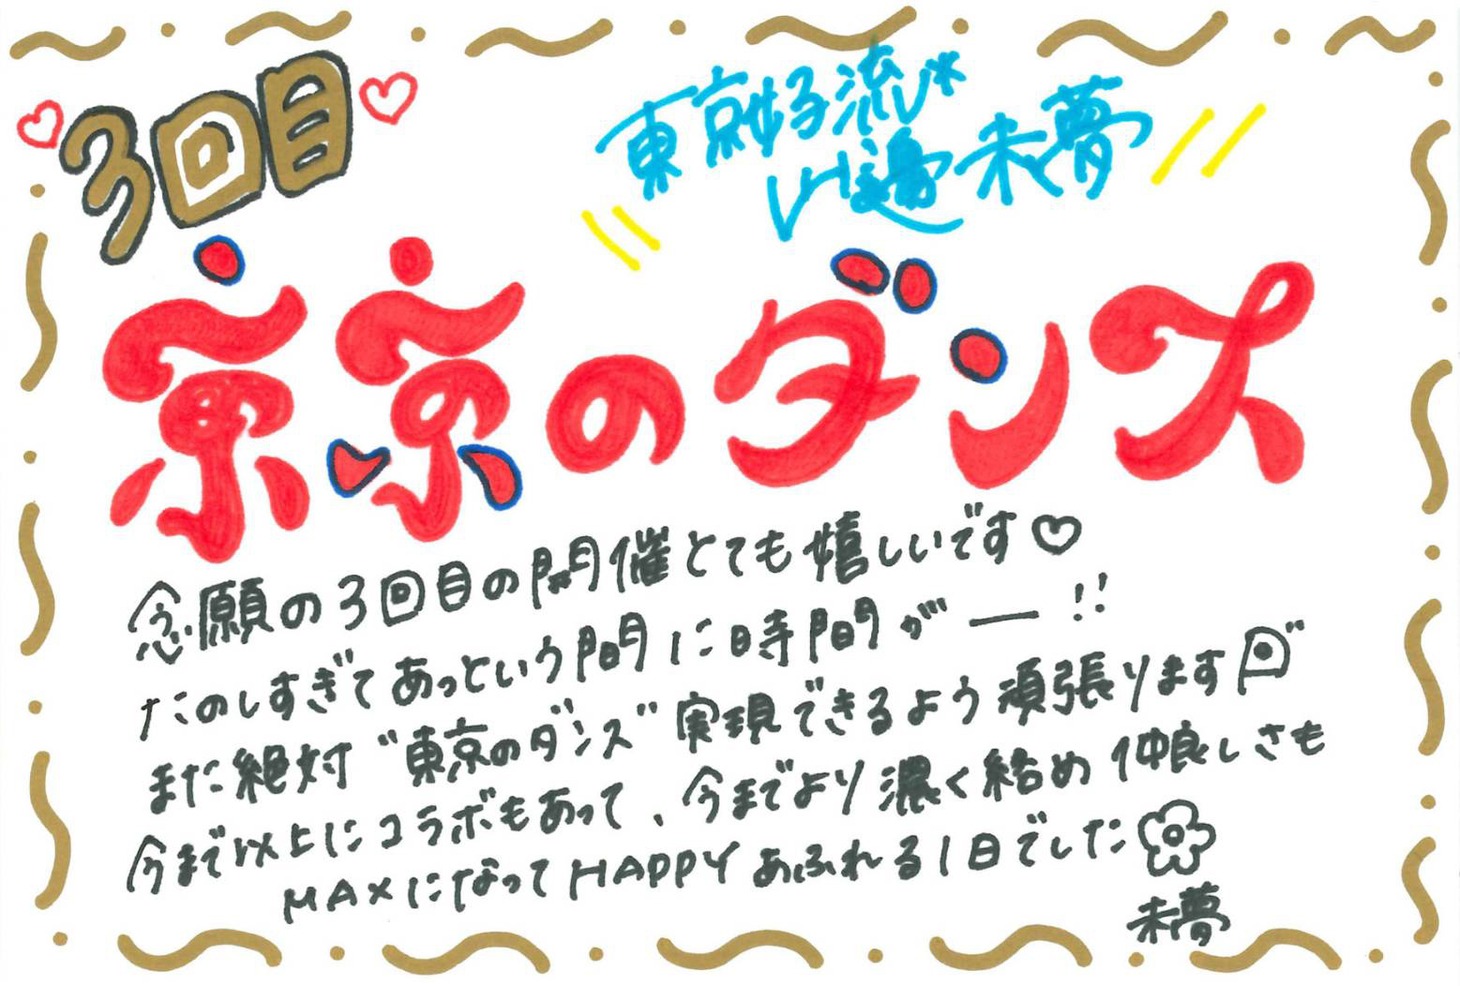 3回目
東京女子流*
山邊未夢
京京のダンス
念願の3回目の開催とても嬉しいです♡
たのしすぎてあっという間に時間がー!!
また絶対"東京のダンス"実現できるよう頑張ります
今まで以上にコラボもあって、今までより濃く絡め仲良しさも
MAXになってHAPPYあふれる1日でした
未夢